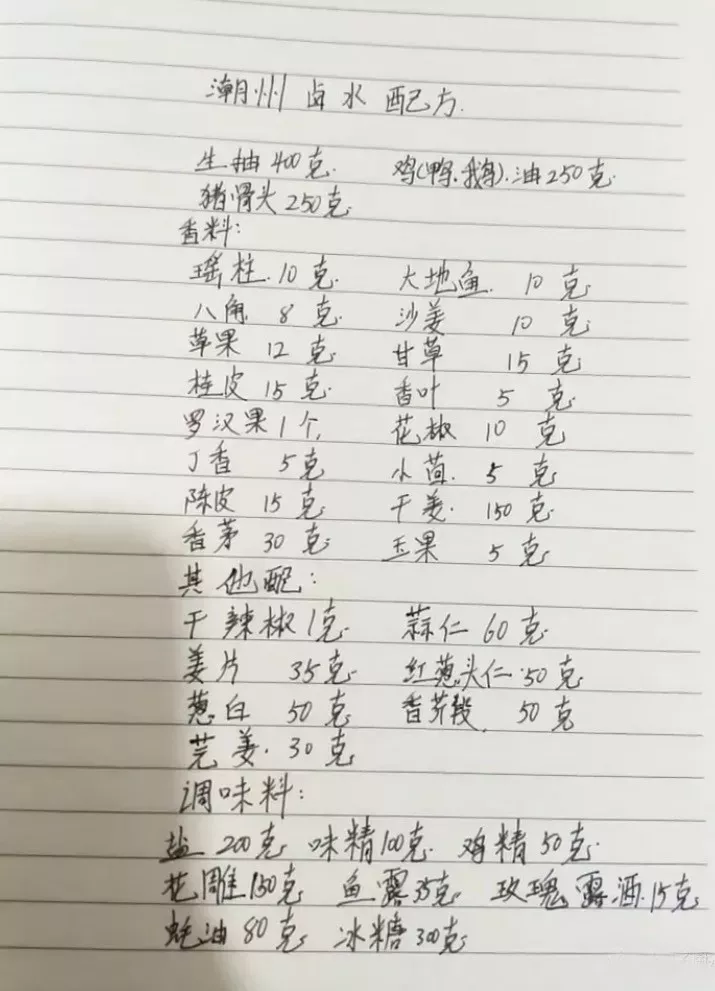 潮州卤水配方.
生抽400克. 鸡(鸭.鹅).油250克
猪骨头250克
香料:
瑶柱.10克. 大地鱼. 10克
八角 8克. 沙姜 10克
草果 12克 甘草 15克
桂皮 15克. 香叶 5克
罗汉果1个, 花椒 10克
丁香 5克 小茴. 5克
陈皮 15克 干姜. 150克
香茅 30克 玉果 5克
其他配:
干辣椒1克 蒜仁 60克
姜片 35克 红葱头仁.50克
葱白 50克 香芹段. 50克
芫荽.30克
调味料:
盐 200克 味精100克. 鸡精50克.
花雕150克 鱼露35克 玫瑰露酒.15克
蚝油80克 冰糖300克